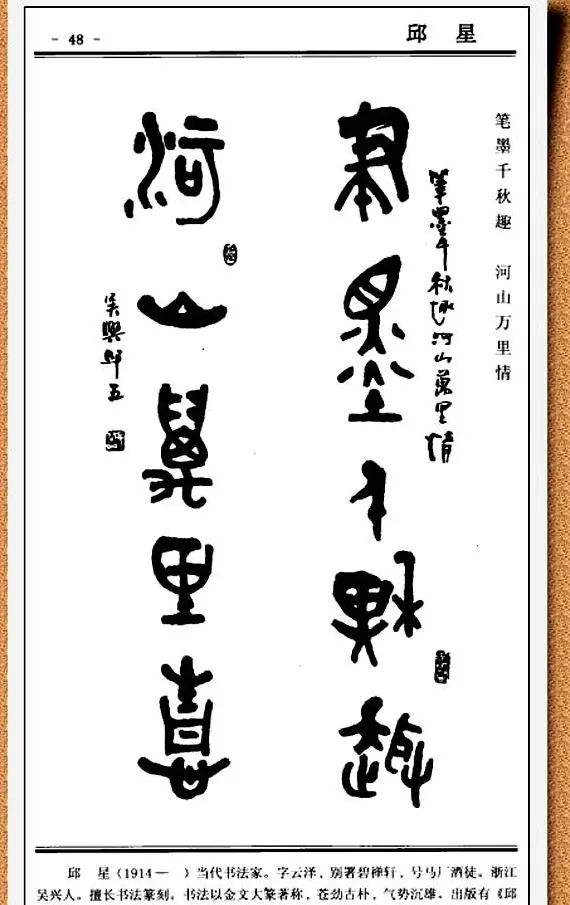 - 48 -
邱 星
笔墨千秋趣 河山万里情
筆墨千秋趣河山萬里情
筆墨千秋趣
河山萬里情
吴興邱五
邱 星(1914— )当代书法家。字云泽,别署碧禅轩,号马厂酒徒。浙江
吴兴人。擅长书法篆刻。书法以金文大篆著称,苍劲古朴,气势沉雄。出版有《邱